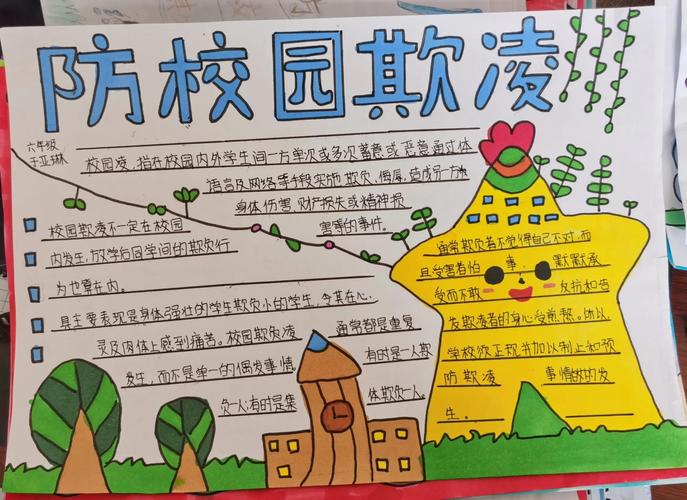 防校园欺凌
六年级
于亚琳
校园凌,指在校园内外学生间一方单次或多次蓄意或恶意通过体
语言及网络等手段实施欺负、侮辱、造成另一方
身体伤害、财产损失或精神损
害等的事件。
校园欺凌不一定在校园
内发生,放学后同学间的欺负行
为也算在内。
具主要表现是身体强壮的学生欺负小的学生,令其在心
灵及肉体上感到痛苦。校园欺负凌
通常都是重复
发生,而不是单一的偶发事情
有时是一人欺
负一人;有时是集
体欺负一人。
通常欺负者不觉得自己不对,而
且受害者怕 事, 默默承
受而不敢 反抗和告
发欺凌者的身心受煎熬。所以
学校须正视并加以制止和预
防欺凌 事情的发
生。